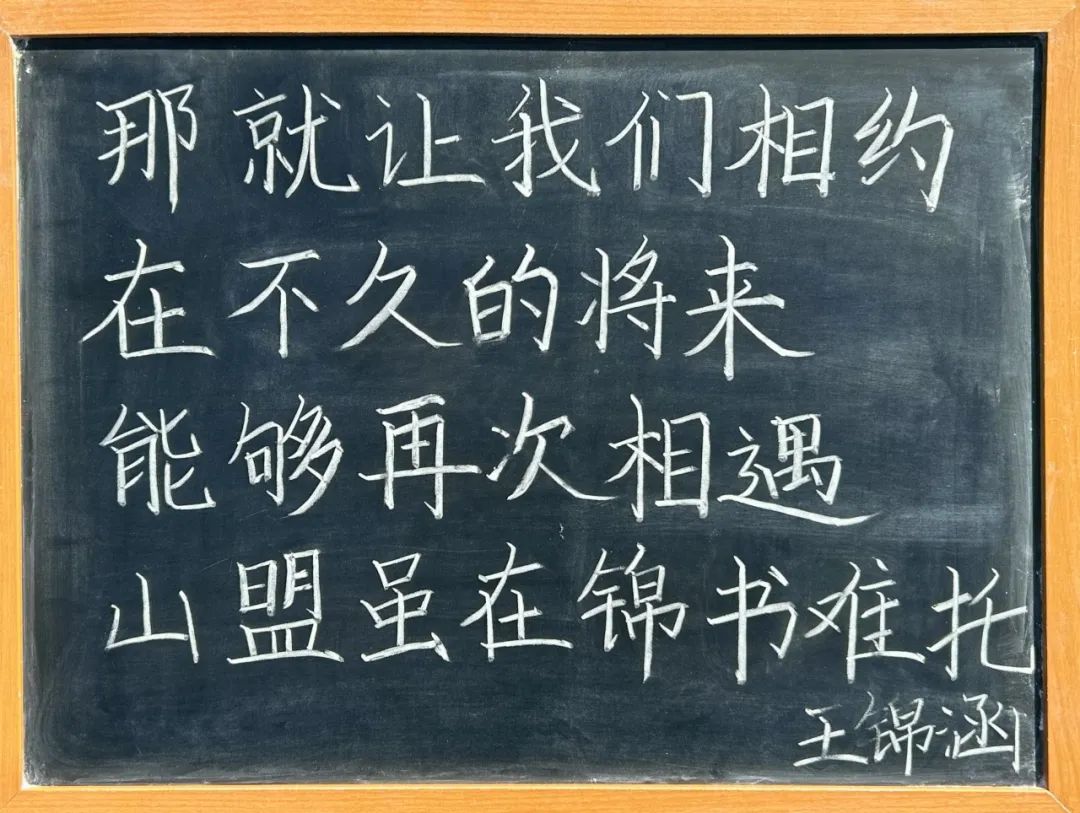 那就让我们相约
在不久的将来
能够再次相遇
山盟虽在锦书难托
王锦涵